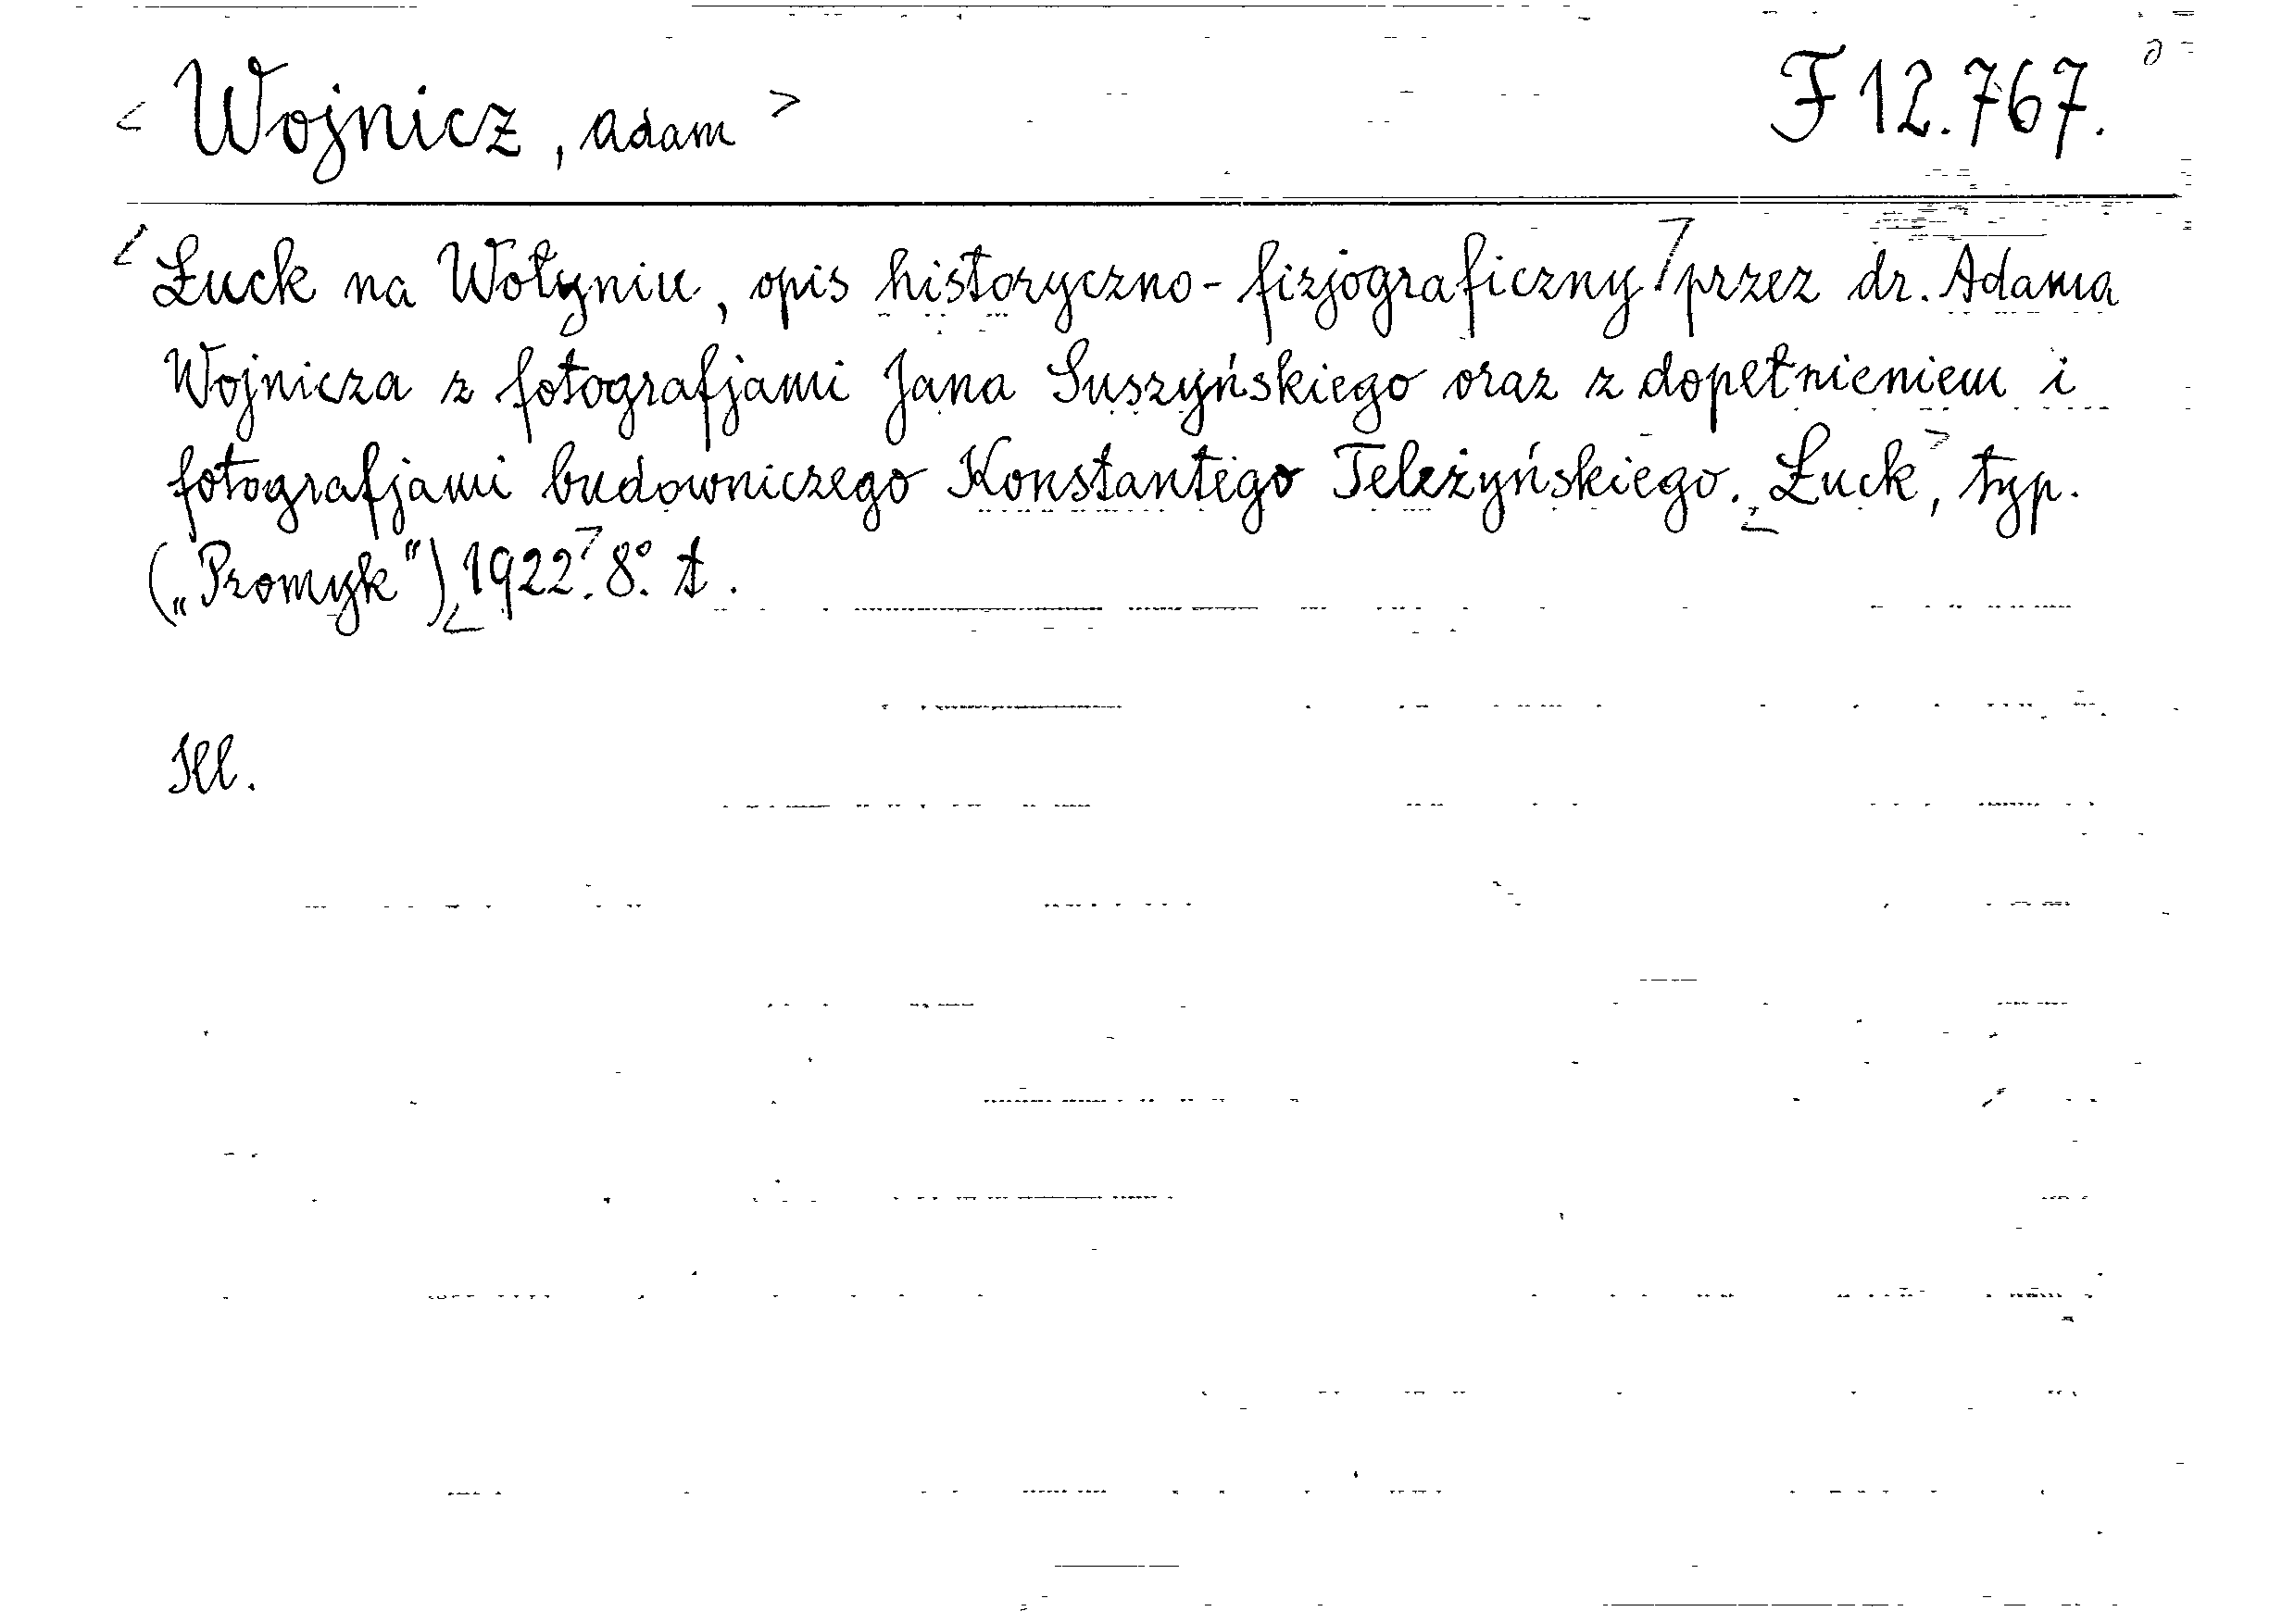 < Wojnicz, Adam > F 12.767.
< Łuck na Wołyniu, opis historyczno-fizjograficzny / przez dr. Adama
Wojnicza z fotografjami Jana Suszyńskiego oraz z dopełnieniem i
fotografjami budowniczego Konstantego Teleżyńskiego. < Łuck >, typ.
(„Promyk") < 1922 >. 8°. A.
Ill.